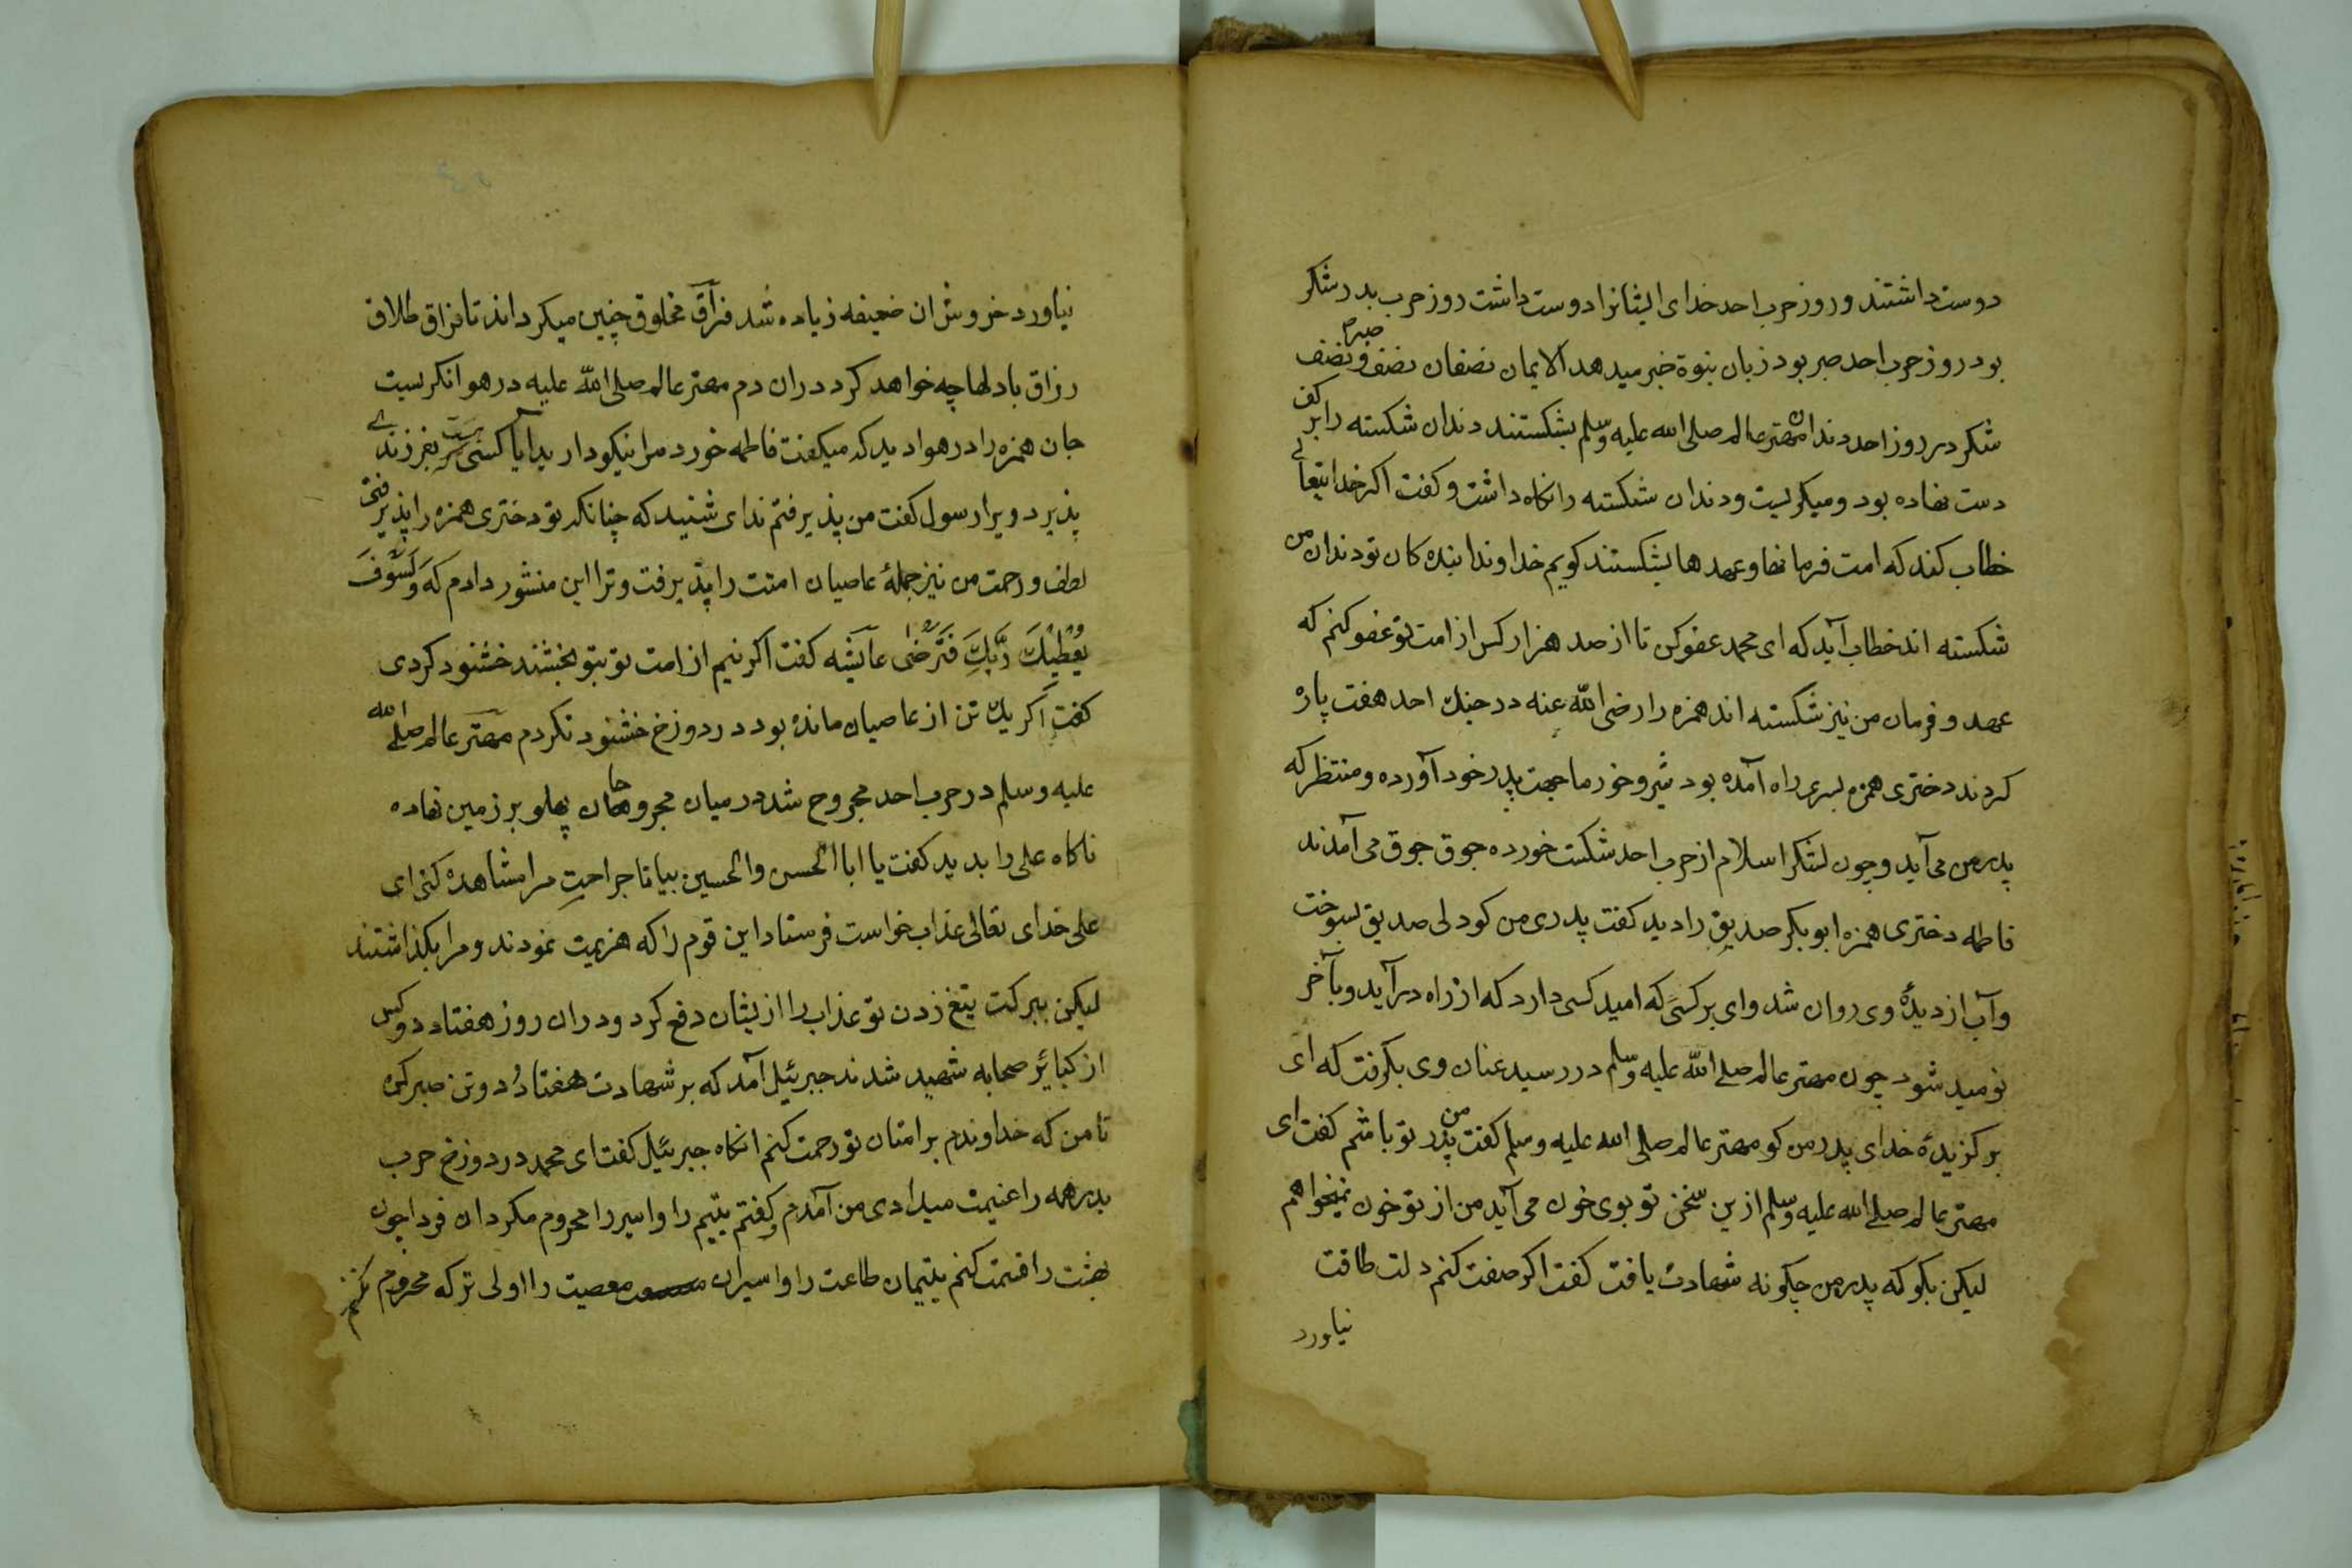 دوست داشتند و روز حرب احد خدای ایشانرا دوست داشت روز حرب بدر شکر
بود روز حرب احد صبر بود زبان نبوة خبر میدهد الایمان نصفان نصف صبر و نصف
شکر در روز احد دندان مهتر عالم صلی الله علیه وسلم بشکستند دندان شکسته را بر کف
دست نهاده بود و میکریست و دندان شکسته را نکاه داشت و کفت اکر خدایتعالے
خطاب کند که امت فرمانها و عهدها بشکستند کویم خداوندا بنده کان تو دندان من
شکسته اند خطاب آید که ای محمد عفو کن تا از صد هزار کس از امت تو عفو کنم که
عهد و فرمان من نیز شکسته اند همزه را رضی الله عنه در جنک احد هفت پاره
کردند دختری همزه بسری راه آمده بود شیر و خورما جهت پدر خود آورده و منتظر که
پدر من می آید و چون لشکر اسلام از حرب احد شکست خورده جوق جوق می آمدند
فاطمه دختری همزه ابو بکر صدیق را دید کفت پدری من کو دلی صدیق بسوخت
و آب از دیدهٔ وی روان شد وای بر کسی که امید کسی دارد که از راه در آید و بآخر
نومید شود چون مهتر عالم صلے الله علیه وسلم در رسید عنان وی بکرفت که ای
برکزیدهٔ خدای پدر من کو مهتر عالم صلی الله علیه وسلم کفت من پدر تو باشم کفت ای
مهتر عالم صلے الله علیه وسلم ازین سخن تو بوی خون می آید من از تو خون نمیخواهم
لیکن بکو که پدر من چکونه شهادت یافت کفت اکر صفت کنم دلت طاقت
نیاورد
نیاورد خروش ان ضعیفه زیاده شد فراق مخلوق چنین میکرداند تا فراق طلاق
رزاق با دلها چه خواهد کرد دران دم مهتر عالم صلی الله علیه در هوا نکریست
جان همزه را در هوا دید که میکفت فاطمه خورد مرا نیکو دارید آیا کسی هست بفرزندے
پذیرد ویرا رسول کفت من پذیرفتم ندای شنید که چنانکه تو دختری همزه را پذیرفتی
لطف و رحمت من نیز جملهٔ عاصیان امتت را پذیرفت و ترا این منشور دادم که وَلَسَوْفَ
یُعْطِیْکَ رَبُّکَ فَتَرْضٰی عایشه کفت اکر نیم از امت تو بتو بخشند خشنود کردی
کفت اکر یک تن از عاصیان مانده بود در دوزخ خشنود نکردم مهتر عالم صلے الله
علیه وسلم در حرب احد مجروح شد در میان مجروحان پهلو بر زمین نهاده
ناکاه علی را بدید کفت یا ابا الحسن والحسین بیا تا جراحتِ مرا مشاهده کنی ای
علی خدای تعالی عذاب خواست فرستاد این قوم را که هزیمت نمودند و مرا بکذاشتند
لیکن ببرکت تیغ زدن تو عذاب را از یشان دفع کرد و دران روز هفتاد دو کس
از کبائر صحابه شهید شدند جبرئیل آمد که بر شهادت هفتاد و دو تن صبر کن
تا من که خداوندم بر امتان تو رحمت کنم انکاه جبرئیل کفت ای محمد در دوزخ حرب
بدر همه را غنیمت میدادی من آمدم و کفتم یتیم را و اسیر را محروم مکردان فردا چون
بهشت را قسمت کنم یتیمان طاعت را و اسیران معصیت را اولی ترکه محروم نکنم